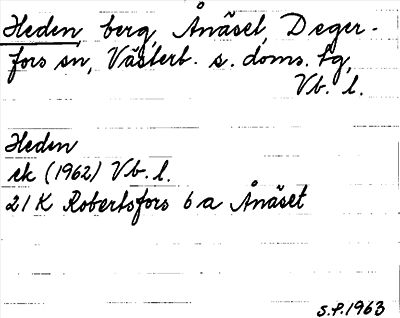 Heden, berg, Ånäset, Deger-
fors sn, Västerb. s. doms. fg,
Vb. l.
Heden
ek (1962) Vb. l.
21 K Robertsfors 6 a Ånäset
S.P. 1963